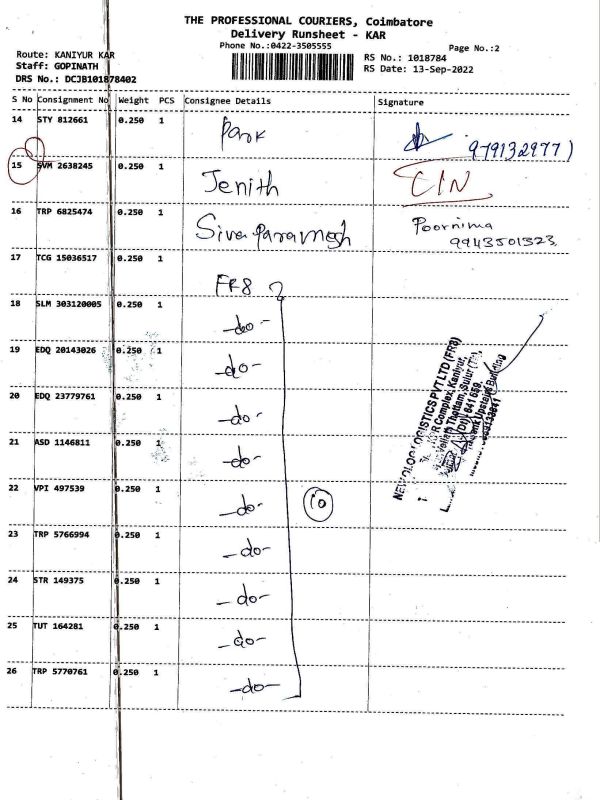 THE PROFESSIONAL COURIERS, Coimbatore
Delivery Runsheet - KAR
Phone No.:0422-3505555
Page No.:2
Route: KANIYUR KAR
Staff: GOPINATH
DRS No.: DCJB101878402
RS No.: 1018784
RS Date: 13-Sep-2022
S No Consignment No Weight PCS Consignee Details Signature
14 STY 812661 0.250 1 Park 979132977)
15 SVM 2638245 0.250 1 Jenith CIN
16 TRP 6825474 0.250 1 Siva Paramesh Poornima
9943501323
17 TCG 15036517 0.250 1 FR8
18 SLM 303120005 0.250 1 -do-
19 EDQ 20143026 0.250 1 -do-
20 EDQ 23779761 0.250 1 -do-
21 ASD 1146811 0.250 1 -do-
22 VPI 497539 0.250 1 -do- 10
23 TRP 5766994 0.250 1 -do-
24 STR 149375 0.250 1 -do-
25 TUT 164281 0.250 1 -do-
26 TRP 5770761 0.250 1 -do-
LOGISTICS PVT LTD (FR8)
Complex, Kaniyur,
Thottam, Sulur
641 659.
Upstairs Building